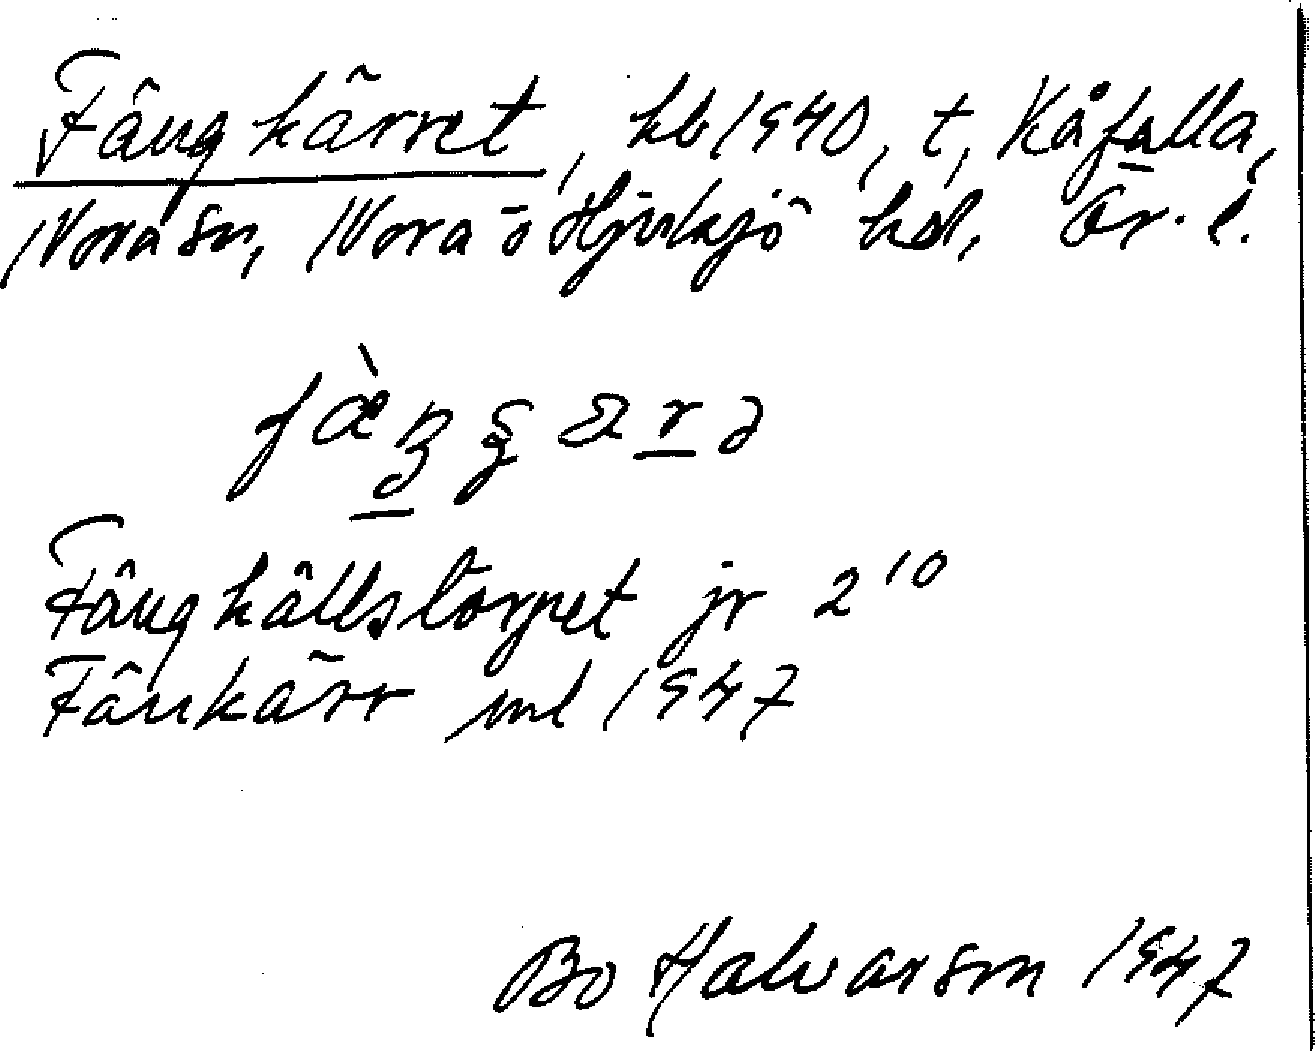 Fängkärret, hb 1940, t, Kåfalla,
Nora sn, Nora o Hjulsjö hd, Ör. l.
Fängkällstorpet jr 2¹⁰
Fänkärr ml 1947
Bo Halvarson 1947